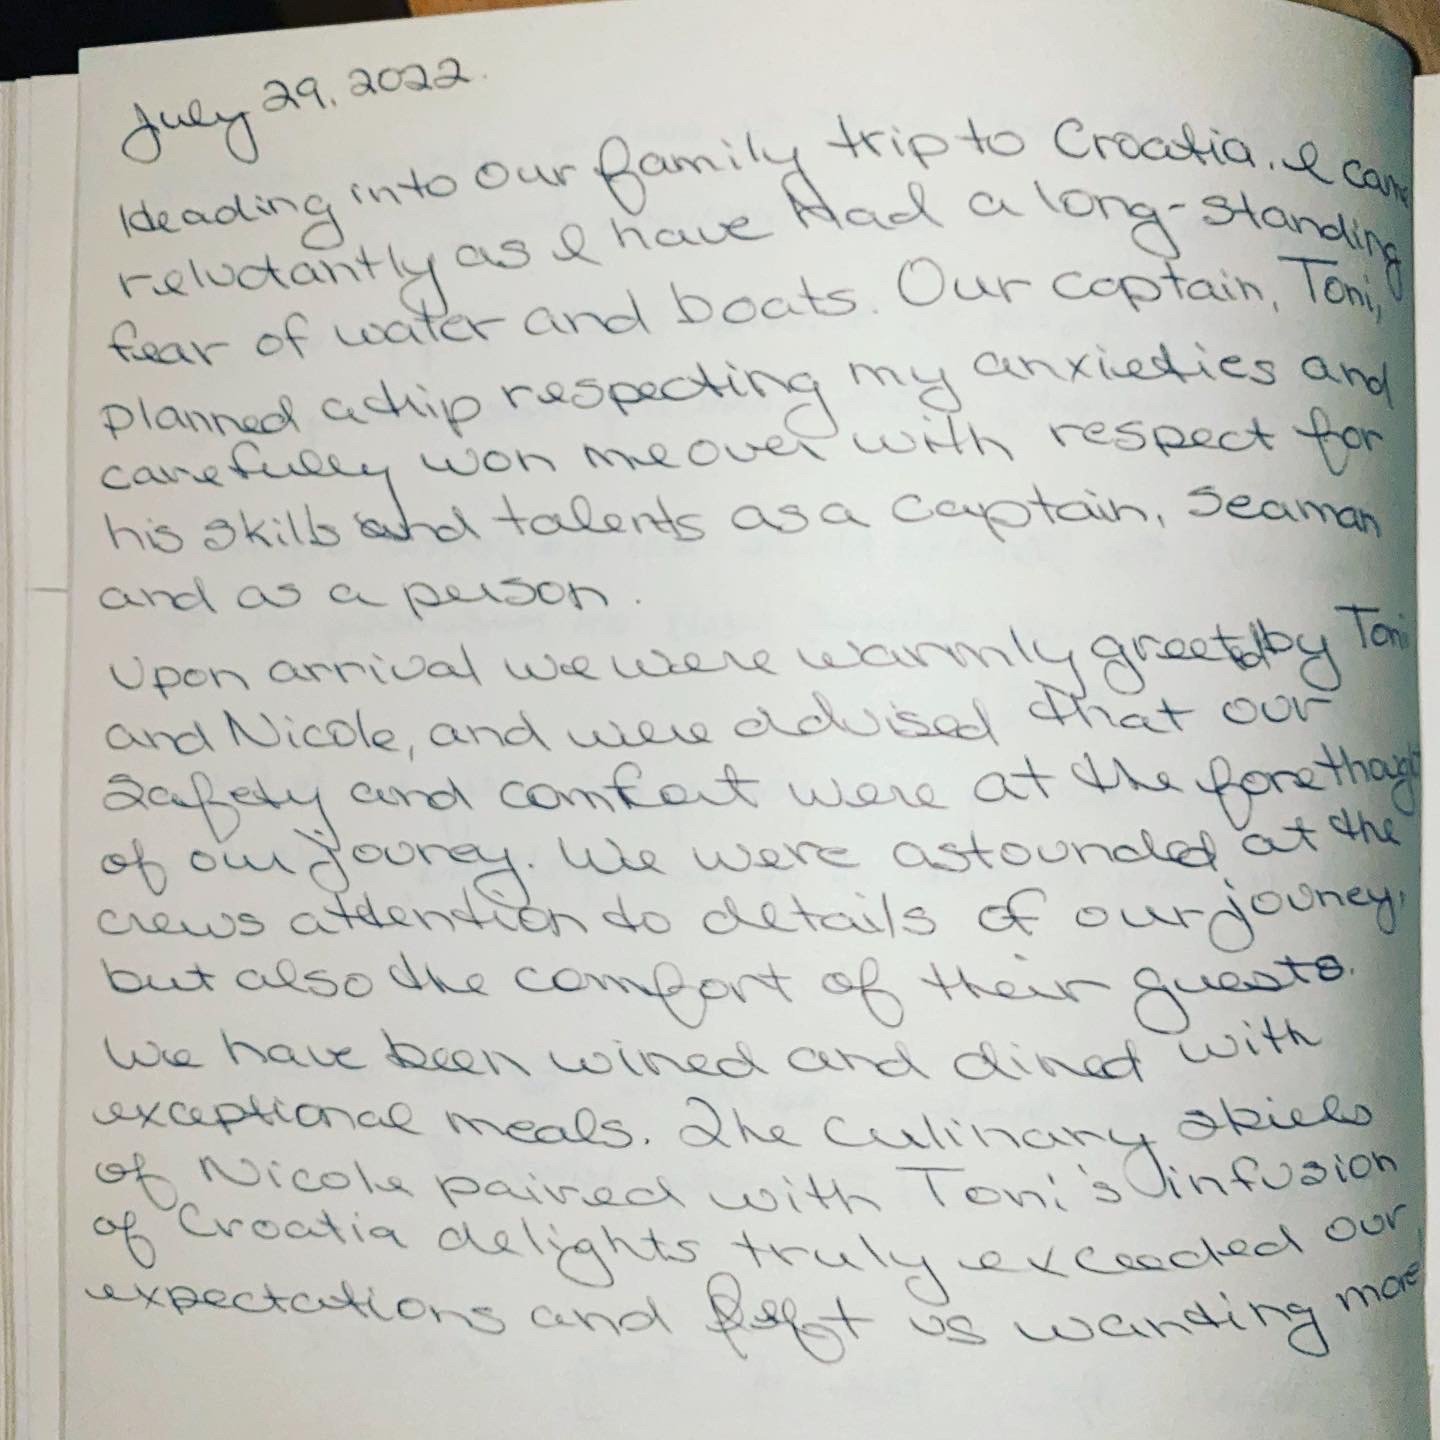 July 29, 2022.
Heading into our family trip to Croatia, I came
reluctantly as I have had a long-standing
fear of water and boats. Our captain, Toni,
planned a trip respecting my anxieties and
carefully won me over with respect for
his skills and talents as a captain, seaman
and as a person.
Upon arrival we were warmly greeted by Toni
and Nicole, and were advised that our
safety and comfort were at the forethought
of our jouney. We were astounded at the
crews attention to details of our jouney,
but also the comfort of their guests.
We have been wined and dined with
exceptional meals. The culinary skills
of Nicole paired with Toni's infusion
of Croatia delights truly exceeded our
expectations and left us wanting more